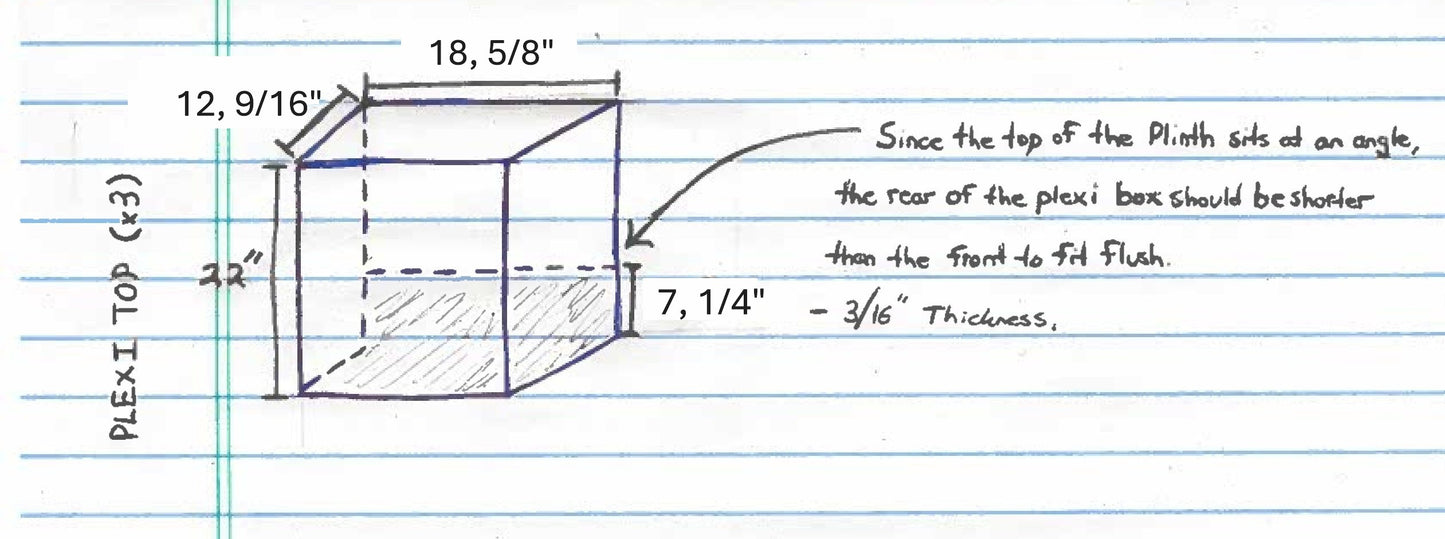 18, 5/8"
12, 9/16"
Since the top of the Plinth sits at an angle,
the rear of the plexi box should be shorter
than the front to fit flush.
- 3/16" Thickness.
22"
7, 1/4"
PLEXI TOP (x3)